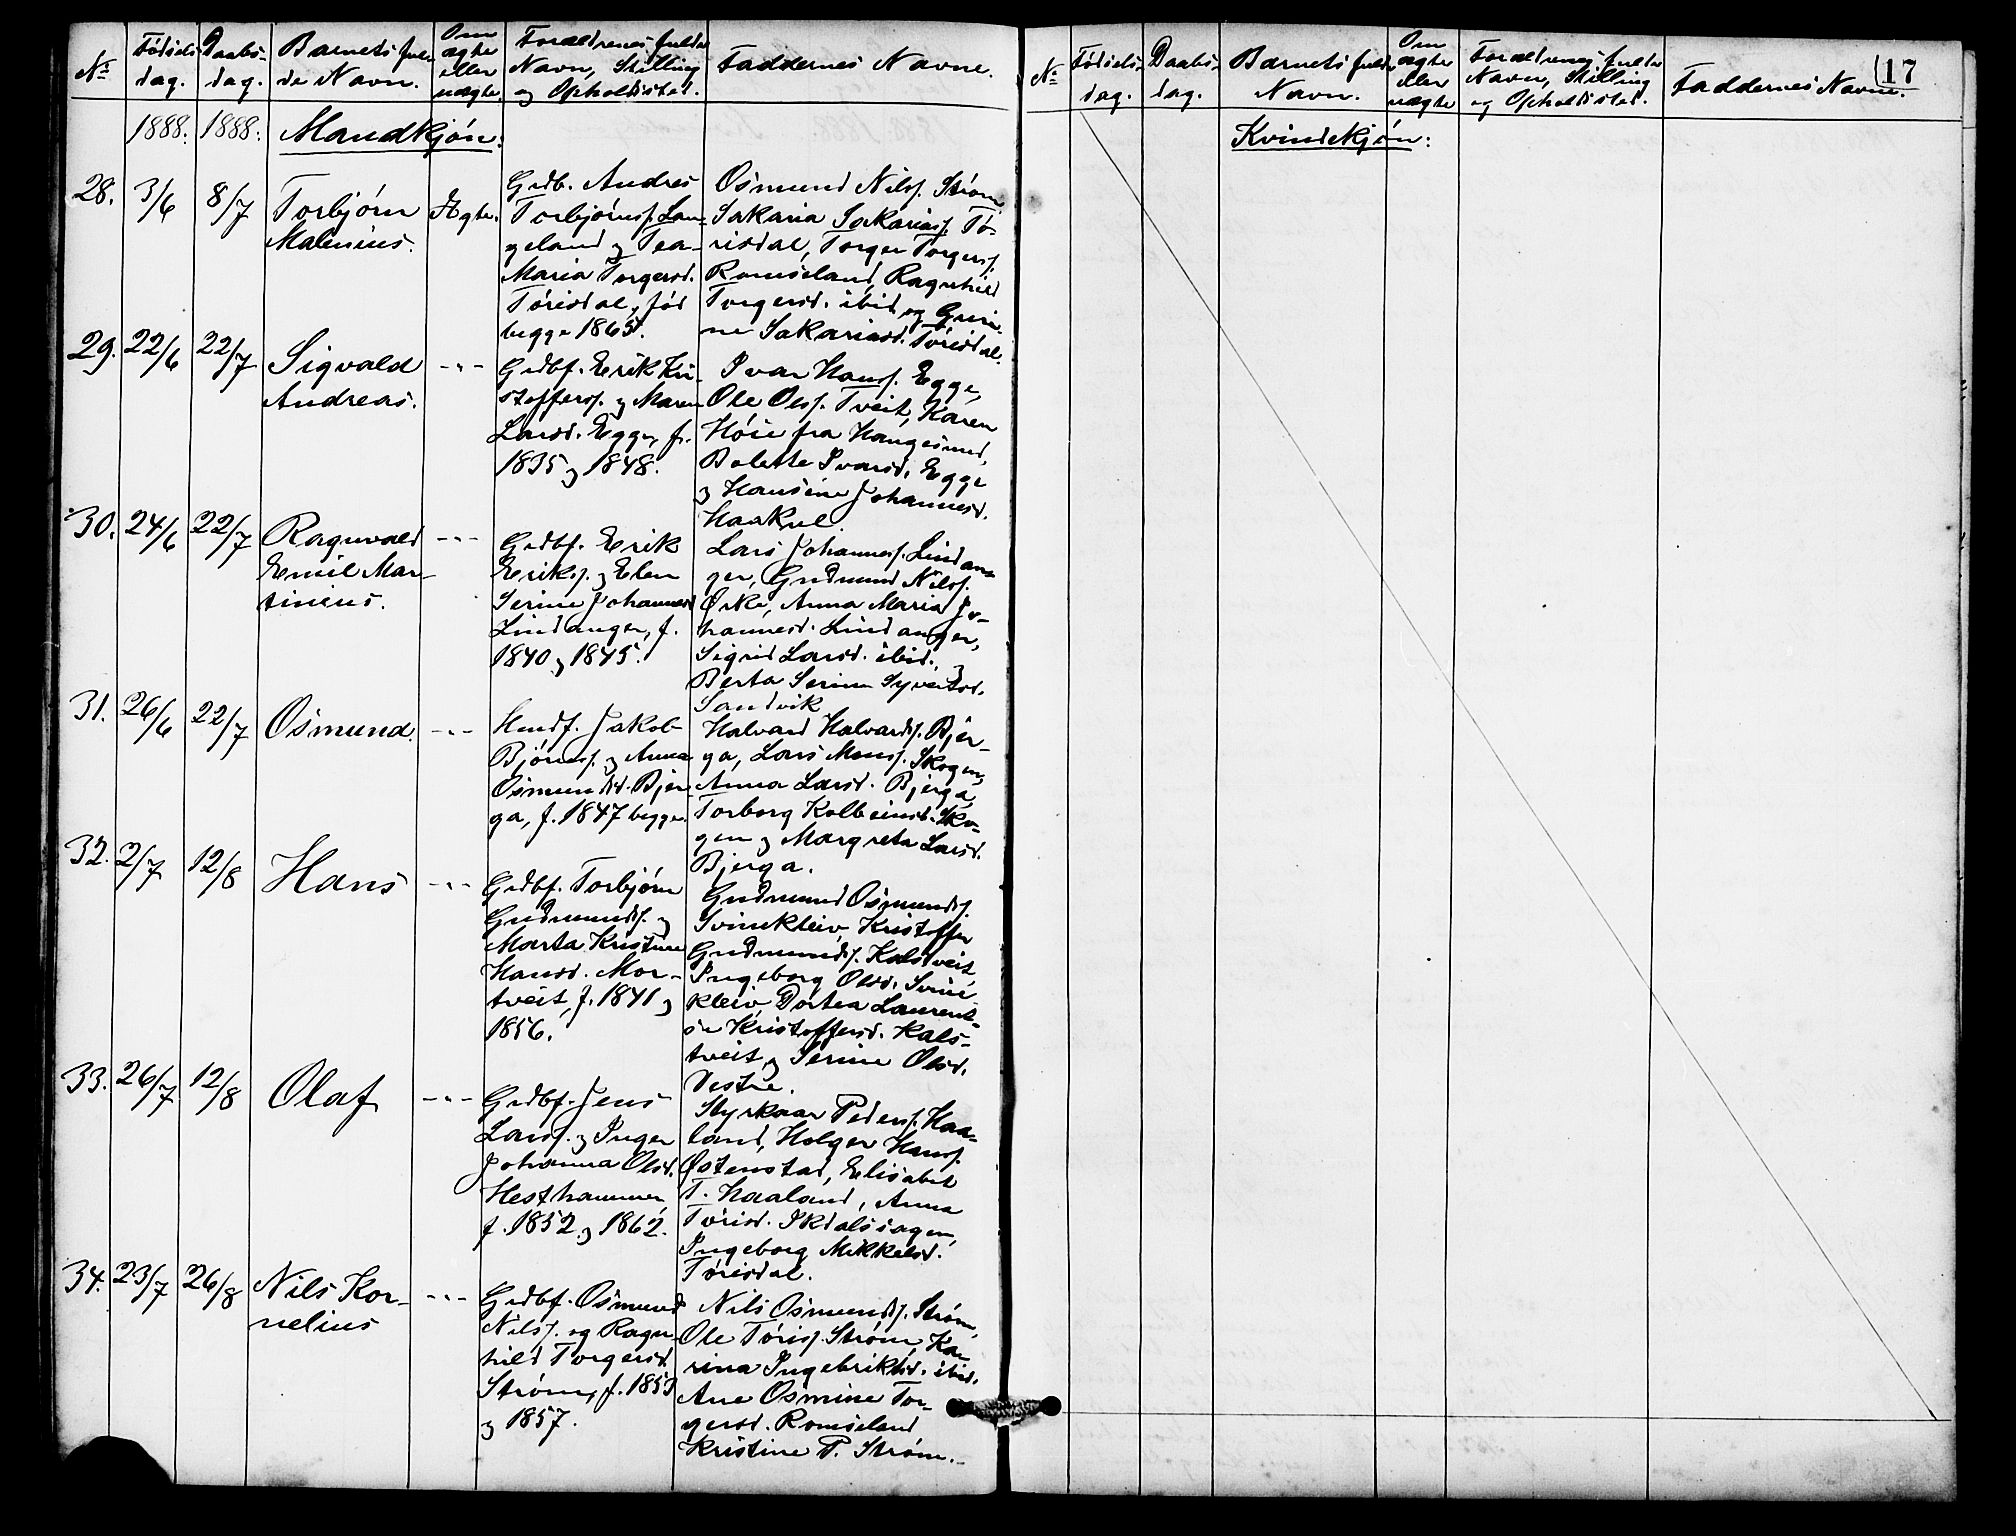 17
No
Fødsels-
dag.
Daabs-
dag.
Barnets ful-
de Navn.
Om
ægte
eller
uægte.
Forældrenes fulde
Navn, Stilling
og Opholdssted.
Faddernes Navne.
1888.
1888.
Mandkjøn:
28.
3/6
8/7
Torbjørn
Malenius.
Ægte.
Grdb. Andres
Torbjørnss. Lan-
geland og Tea
Maria Torgersd.
Tórisdal, fød
begge 1865.
Osmund Nilss. Strøm
Sakaria Sakariass. Tó-
risdal, Torger Torgerss.
Romseland, Ragnhild
Torgersd. ibid og Guri-
ne Sakariasd. Tórisdal.
29.
22/6
22/7
Sigvald
Andreas.
-"-
Grdbf. Erik Kri-
stofferss. og Maren
Larsd. Egge, f.
1835 og 1848.
Ivar Hanss. Egge,
Ole Olss. Tveit, Karen
Höie fra Haugesund,
Bolette Ivarsd. Egge
og Hansine Johannesd.
Haakul.
30.
24/6
22/7
Ragnvald
Emil Mar-
tinius.
-"-
Grdbf. Erik
Eriks. og Elen
Serine Johannesd
Lindanger, f.
1840 og 1845.
Lars Johanness. Lindan-
ger, Gudmund Nilss.
Ørke, Anna Maria Jo-
hannesd. Lindanger,
Sigrid Larsd. ibid. og
Berta Serine Syvertsd.
Sandvik
31.
26/6
22/7
Osmund.
-"-
Husf. Jakob
Bjórnss. og Anna
Osmundsd. Bjer-
ga, f. 1847 begge.
Halvard Halvards. Bjer-
ga, Lars Monss. Skogen,
Anna Larsd. Bjerga,
Torborg Kolbeinsd. Sko-
gen og Margreta Larsd.
Bjerga.
32.
2/7
12/8
Hans
-"-
Grdbf. Torbjórn
Gudmunds. og
Marta Kristine
Hansd. Mor-
tveit, f. 1841 og
1856.
Gudmund Osmunds.
Svinekleiv, Kristoffer
Gudmunds. Kalstveit
Ingeborg Olsd. Svine-
kleiv, Dortea Laurent-
se Kristoffersd. Kals-
tveit og Serine Olsd.
Vestre.
33.
26/7
12/8
Olaf
-"-
Grdbf. Jens
Larss. og Inger
Johanna Olsd.
Hesthammer,
f. 1852 og 1862.
Styrkaar Pederss. Haa-
land, Holger Hanss.
Østenstad, Elisabet
T. Haaland, Anna
Tórisd.
Ingeborg Mikkelsd.
Tórisdal.
34.
23/7
26/8
Nils Kor-
nelius
-"-
Grdbf. Osmund
Nilss. og Ragn-
hild Torgersd.
Strøm, f. 1853
og 1857.
Nils Osmunds. Strøm,
Ole Tóriss. Strøm, Ka-
rina Ingebriktsd. ibid.
Ane Osmine Tor-
gersd. Romseland
Kristine P. Strøm.-
No
Fødsels-
dag.
Daabs-
dag.
Barnets fulde
Navn.
Om
ægte
eller
uægte
Forældrenes fulde
Navn, Stilling
og Opholdssted.
Faddernes Navne.
Kvindekjøn: